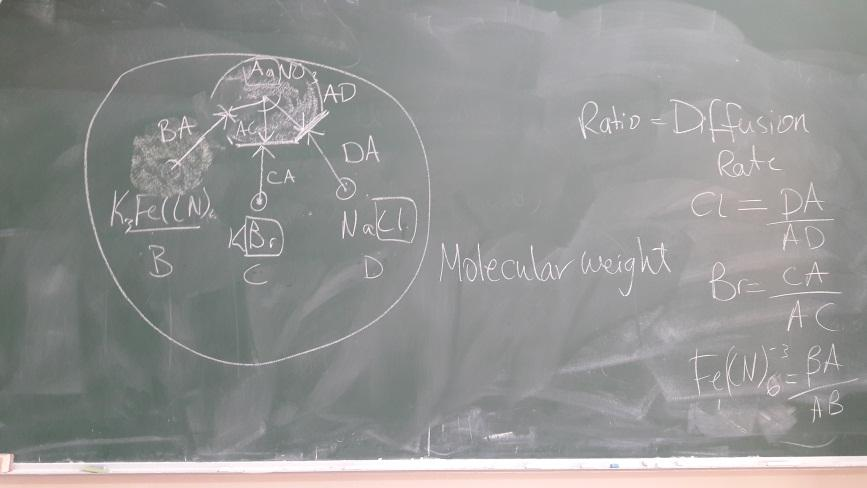 AgNO3
AD
BA
AC
DA
CA
K3Fe(CN)6
KBr
NaCl
B
C
D
Molecular weight
Ratio = Diffusion
Rate
Cl = DA
AD
Br = CA
AC
Fe(CN)6-3 = BA
AB